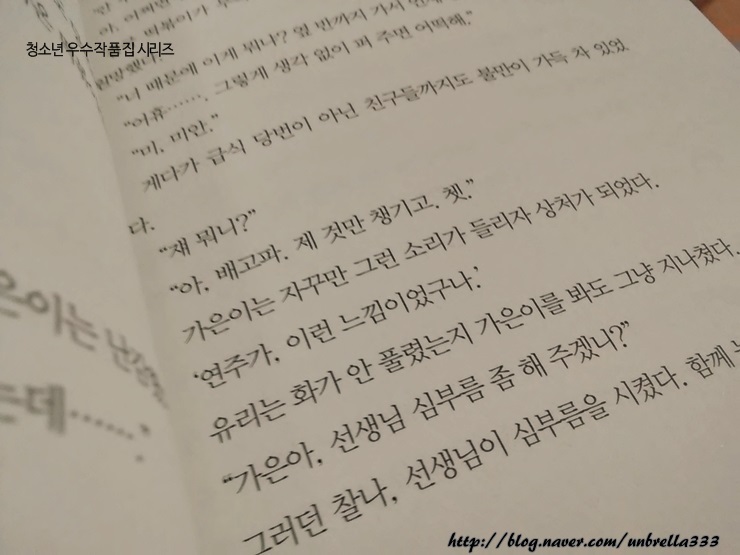 청소년 우수작품집 시리즈
"너 때문에 이게 뭐니? 옆 반까지 가서
"어휴……. 그렇게 생각 없이 퍼 주면 어떡해."
"미, 미안."
게다가 급식 당번이 아닌 친구들까지도 불만이 가득 차 있었
다.
"쟤 뭐니?"
"아, 배고파. 제 것만 챙기고. 쳇."
가은이는 자꾸만 그런 소리가 들리자 상처가 되었다.
'연주가, 이런 느낌이었구나.'
유리는 화가 안 풀렸는지 가은이를 봐도 그냥 지나쳤다.
"가은아, 선생님 심부름 좀 해 주겠니?"
그러던 찰나, 선생님이 심부름을 시켰다. 함께
은이는
는데……;
http://blog.naver.com/unbrella333